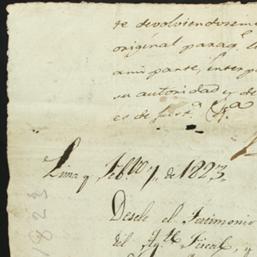 te devolviendoseme
original paraq. l
a mi parte, interp
su autoridad y de
es de just.a &a
Lima y Feb.o 7, de 1823.
Desele el Testimonio
del Ag.te Fiscal, y
1823